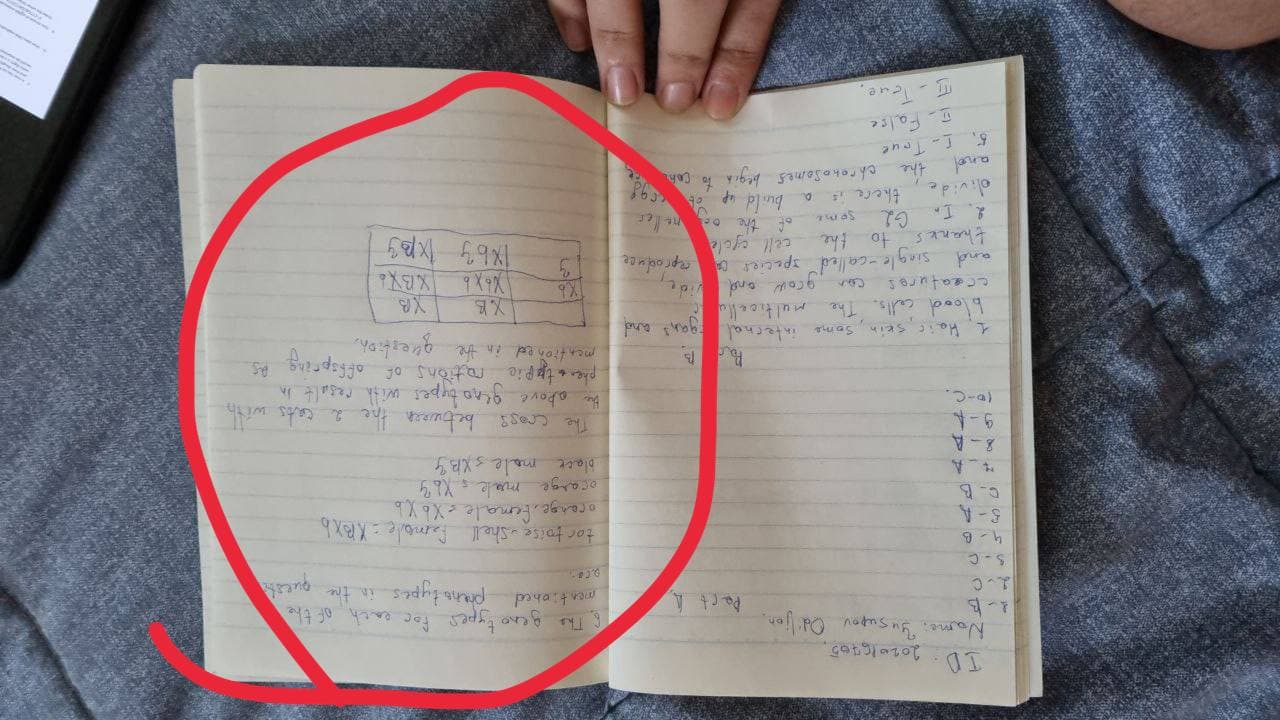 ID: 202016705.
Name: Jusupov Odiljon.
Part A.
1-B
2-C
3-C
4-B
5-A
6-B
7-A
8-A
9-A
10-C.
Part B.
1. Hair, skin, some internal organs and
blood cells. The multicellular
creatures can grow and divide,
and single-called species to reproduce
thanks to the cell cycle.
2. In G2 some of the organelles
divide, there is a build up of energy
and the chrosomes begin to
5. I-True
II-False
III-True.
6. The genotypes for each of the
mentioned phenotypes in the question
are:
tortoise-shell female = XBXb
orange female = XbXb
orange male = Xby
black male = XBy
The cross between the 2 cats with
the above genotypes with result in
phenotypic rations of offspring as
mentioned in the question.
XB XB
Xb XbXb XBXb
y Xby XBy